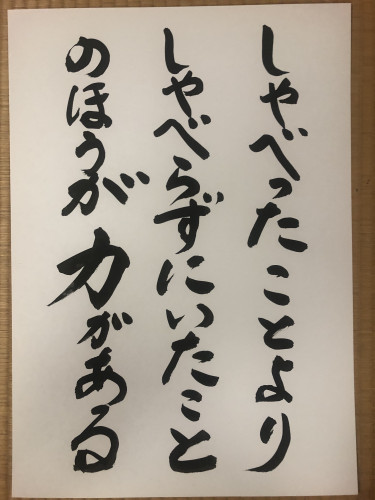 しゃべったことより
しゃべらずにいたこと
のほうが力がある